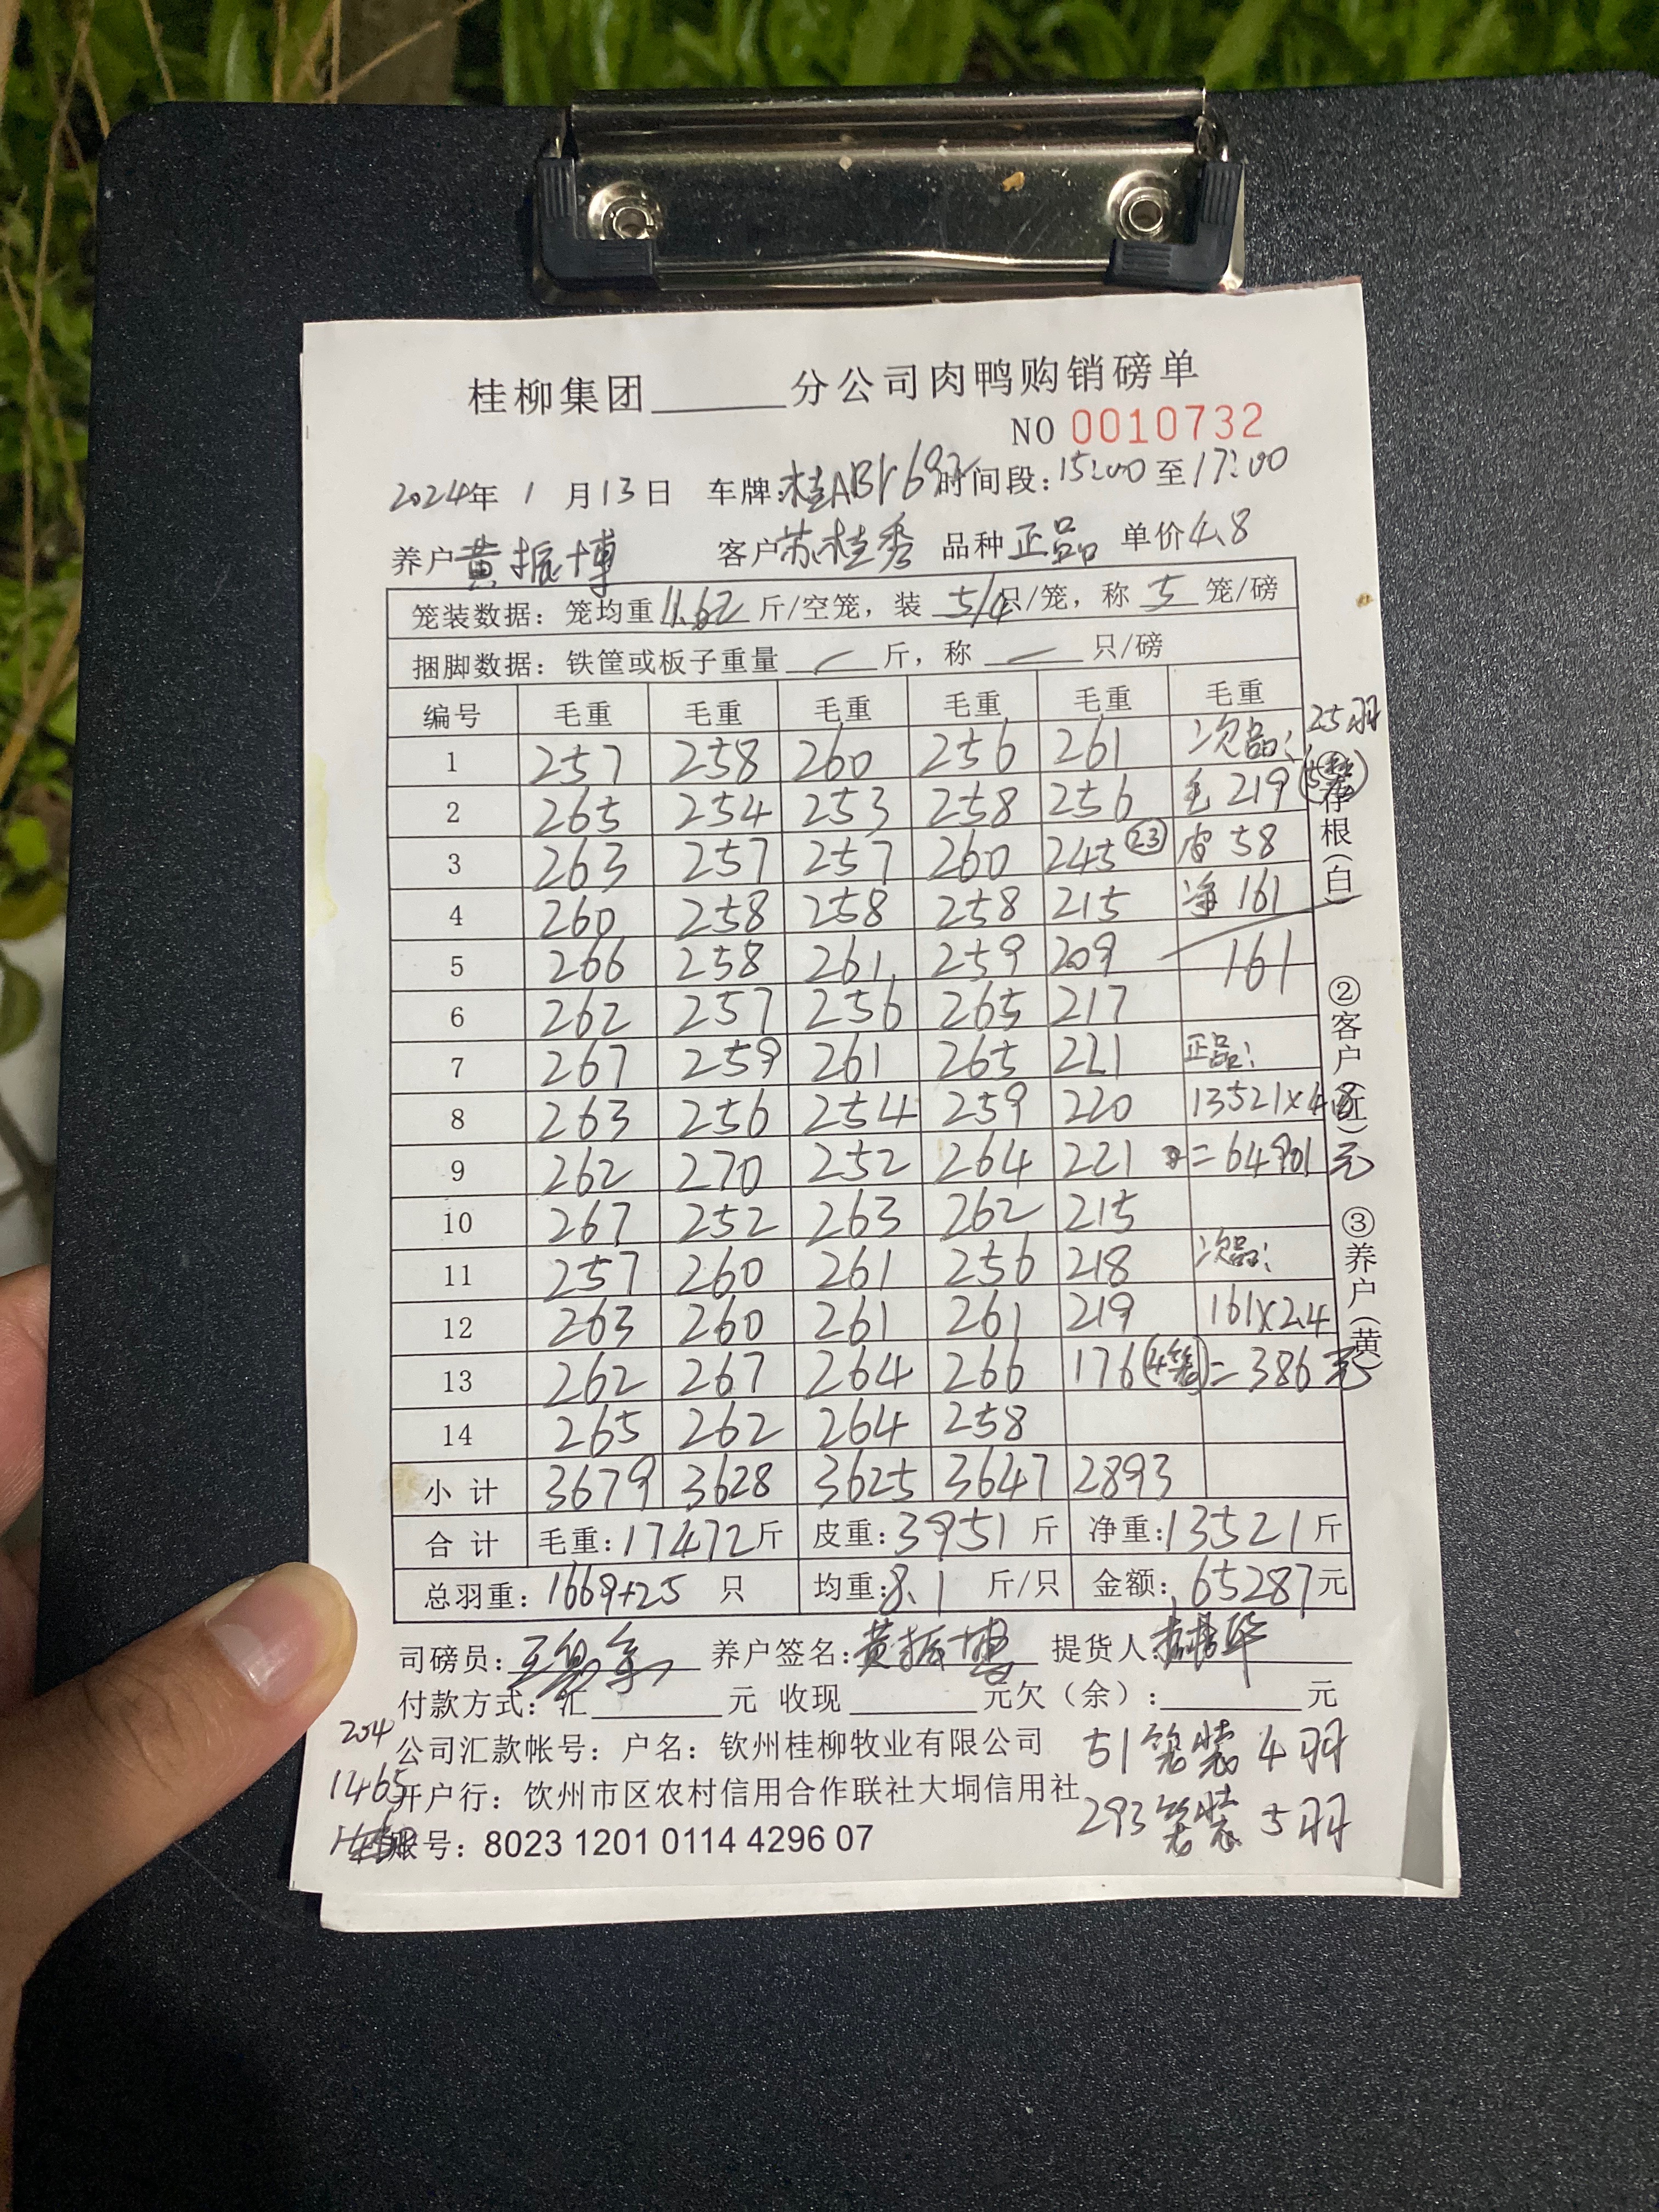 桂柳集团______分公司肉鸭购销磅单
NO 0010732
2024年 1 月 13 日 车牌: 时间段: 15:00 至 17:00
养户 黄振博 客户 苏桂秀 品种 正品 单价 4.8
笼装数据: 笼均重 11.62 斤/空笼, 装 5/4 只/笼, 称 5 笼/磅
捆脚数据: 铁筐或板子重量 / 斤, 称 / 只/磅
编号 毛重 毛重 毛重 毛重 毛重 毛重 25羽
1 257 258 260 256 261 次品:
2 265 254 253 258 256 毛 219
3 263 257 257 260 245 (23) 皮 58
4 260 258 258 258 215 净 161
5 266 258 261 259 209 161
6 262 257 256 265 217
7 267 259 261 265 221 正品:
8 263 256 254 259 220 13521×4.8
9 262 270 252 264 221 =64901元
10 267 252 263 262 215
11 257 260 261 256 218 次品:
12 263 260 261 261 219 161×2.4
13 262 267 264 266 176 (4笼) =386元
14 265 262 264 258
小计 3679 3628 3625 3647 2893
合计 毛重: 17472 斤 皮重: 3951 斤 净重: 13521 斤
总羽重: 1669+25 只 均重: 8.1 斤/只 金额: 65287 元
存根(白)
②客户(红)
③养户(黄)
司磅员: 养户签名: 黄振博 提货人:
付款方式: 汇______元 收现______元欠(余):______元
204
公司汇款帐号: 户名: 钦州桂柳牧业有限公司
51笼装4羽
1465
开户行: 钦州市区农村信用合作联社大垌信用社
293笼装5羽
账号: 8023 1201 0114 4296 07